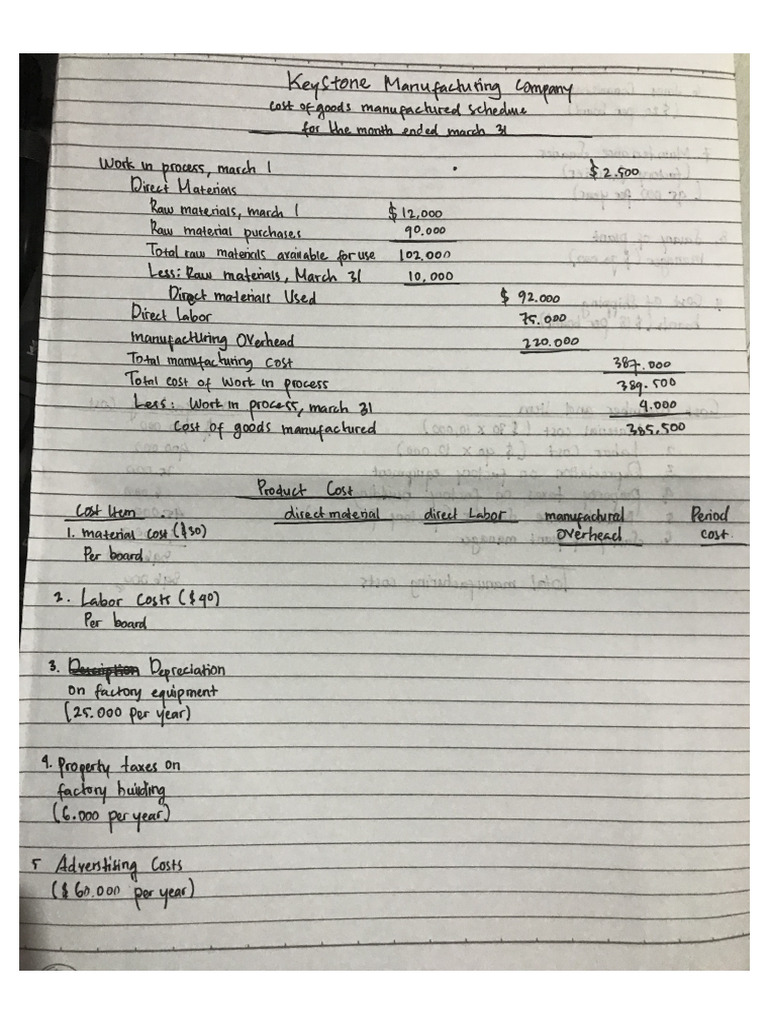 Keystone Manufacturing Company
Cost of goods manufactured schedule
for the month ended march 31
Work in process, march 1 $ 2.500
Direct Materials
Raw materials, march 1 $ 12,000
Raw material purchases 90.000
Total raw materials available for use 102.000
Less: Raw materials, March 31 10,000
Direct materials Used $ 92.000
Direct Labor 75.000
Manufacturing Overhead 220.000
Total manufacturing cost 387.000
Total cost of Work in process 389.500
Less: Work in process, march 31 4.000
Cost of goods manufactured 385,500
Product Cost
Cost Item direct material direct Labor manufactural Period
1. material cost ($30) overhead cost.
Per board
2. Labor Costs ($40)
Per board
3. Description Depreciation
on factory equipment
(25.000 per year)
4. Property taxes on
factory building
(6.000 per year)
5 Adverstising Costs
($ 60.000 per year)